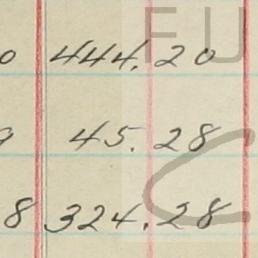 0 444.20
9 45.28
8 324.28